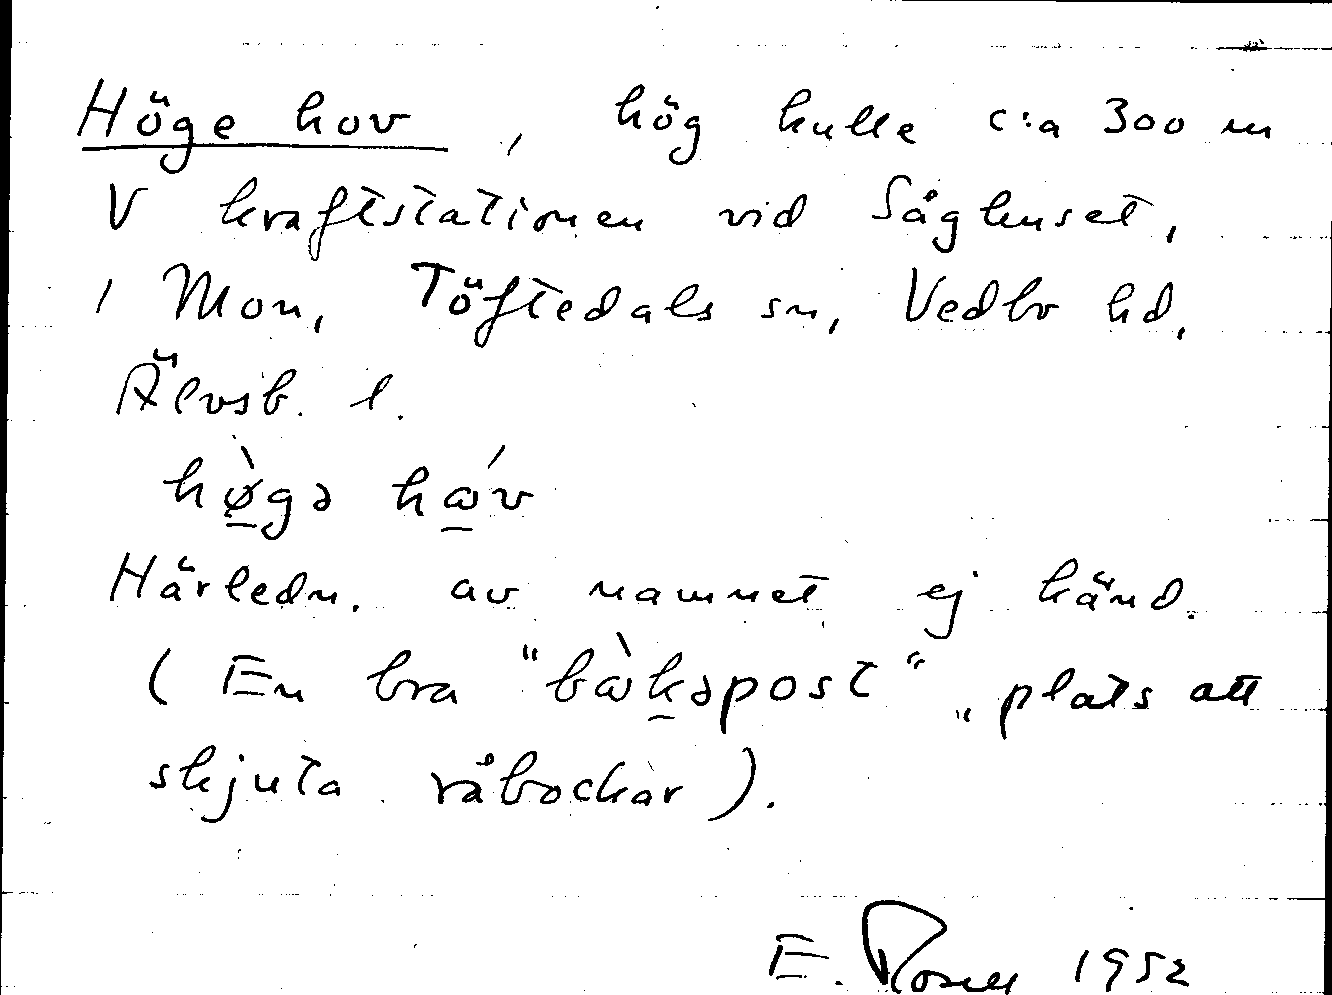 Höge hov, hög kulle c:a 300 m
V kraftstationen vid Såghuset,
i Mon, Töftedals sn, Vedbo hd,
Älvsb. l.
hø̱̀gə hώ̱v
Härledn. av namnet ej känd.
(En bra "bὼḵəpost", plats att
skjuta råbockar).
E. Rosell 1952